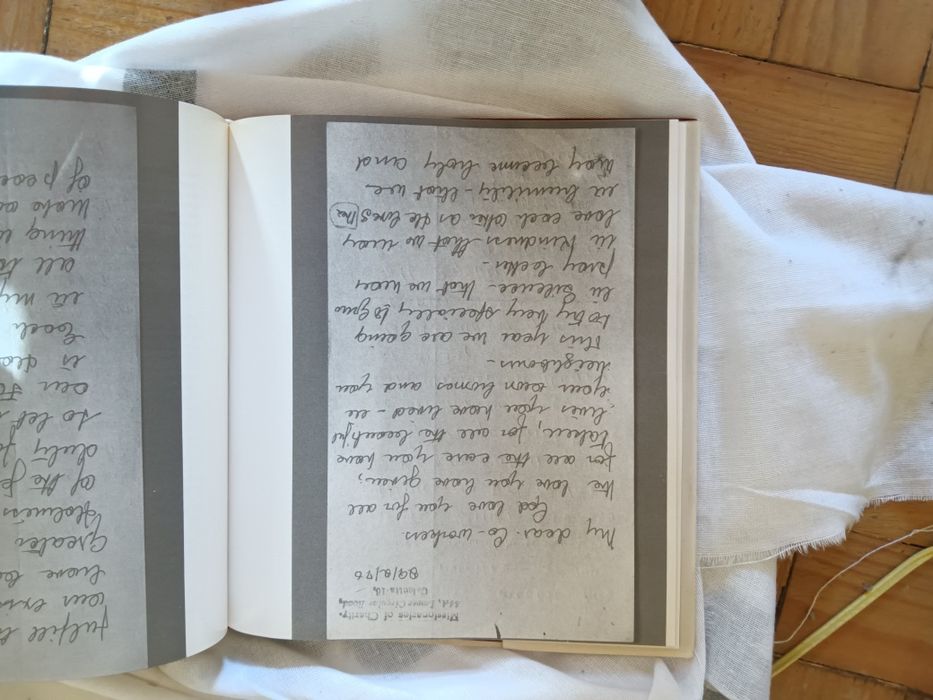 Missionaries of Charity,
54A, Lower Circular Road,
Calcutta-16,
My dear Co-workers
God love you for all
the love you have given,
for all the care you have
taken, for all the beautiful
lives you have lived - in
your own homes and your
neighbours -
This year we are going
to try very specially to grow
in silence - that we may
pray better -
in kindness that we may
love each other as He loves
in humility - that we
may become holy and
fulfill
our
have
Greater
Holiness
of the
duty
to let
our
is
Each
in my
all to
thing
of